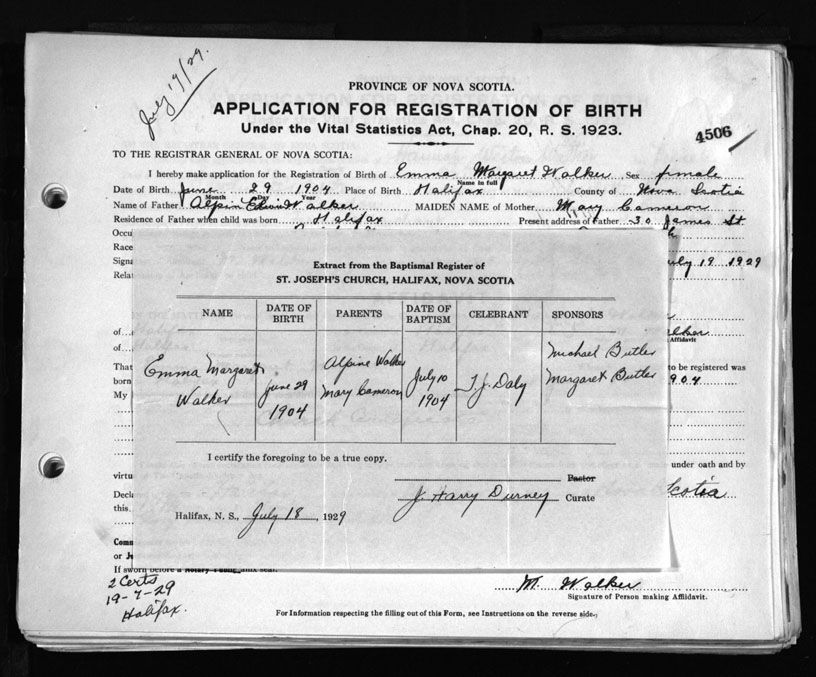 July 19/29.
PROVINCE OF NOVA SCOTIA.
APPLICATION FOR REGISTRATION OF BIRTH
Under the Vital Statistics Act, Chap. 20, R. S. 1923.
4506
TO THE REGISTRAR GENERAL OF NOVA SCOTIA:
I hereby make application for the Registration of Birth of Emma Margaret Walker Sex female
Name in full
Date of Birth June 29 1904 Place of Birth Halifax County of Nova Scotia
Month Day Year
Name of Father Alpin Edwin Walker MAIDEN NAME of Mother Mary Cameron
Residence of Father when child was born Halifax Present address of Father 30 James St
Occu
Race
Signa July 19 1929
Rela
Extract from the Baptismal Register of
ST. JOSEPH'S CHURCH, HALIFAX, NOVA SCOTIA
NAME DATE OF BIRTH PARENTS DATE OF BAPTISM CELEBRANT SPONSORS
Emma Margaret Walker June 29 1904 Alpine Walker Mary Cameron July 10 1904 T. J. Daly Michael Butler Margaret Butler
I certify the foregoing to be a true copy.
Pastor
J. Harry Durney Curate
Halifax, N. S., July 18, 1929
of
Affidavit
of
That to be registered was
born 1904
My
under oath and by
virtu
Decla Scotia
this
Comm
or J
If sworn before a Notary Public
2 Certs
19-7-29
Halifax.
M. Walker
Signature of Person making Affidavit.
For Information respecting the filling out of this Form, see Instructions on the reverse side.